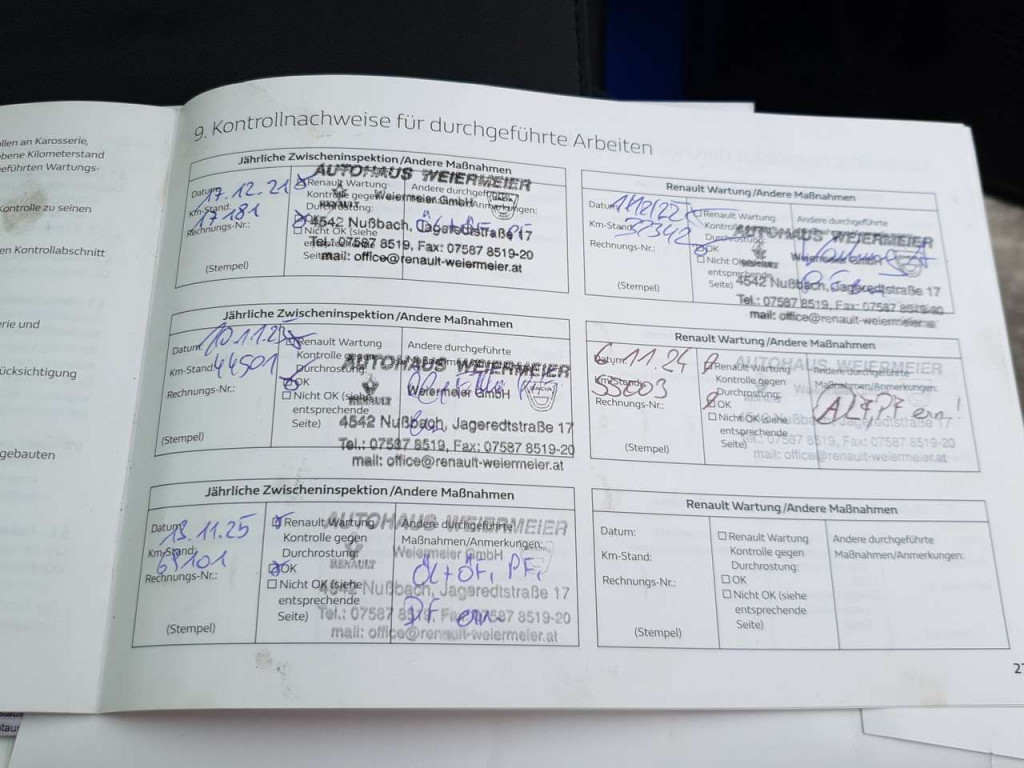 llen an Karosserie,
bene Kilometerstand
eführten Wartungs-
ontrolle zu seinen
en Kontrollabschnitt
erie und
ücksichtigung
gebauten
9. Kontrollnachweise für durchgeführte Arbeiten
Jährliche Zwischeninspektion/Andere Maßnahmen
Datum: 17.12.21
Km-Stand: 17181
Rechnungs-Nr.:
(Stempel)
Renault Wartung
Kontrolle gegen
Durchrostung:
OK
Nicht OK (siehe
Seite)
Andere durchgeführte
AUTOHAUS WEIERMEIER
Weiermeier GmbH
RENAULT
DACIA
4542 Nußbach, Jageredtstraße 17
Tel.: 07587 8519, Fax: 07587 8519-20
mail: office@renault-weiermeier.at
Renault Wartung/Andere Maßnahmen
Datum:
Km-Stand:
Rechnungs-Nr.:
(Stempel)
Renault Wartung
Kontrolle gegen
Durchrostung:
OK
Nicht OK
entsprechende
Seite)
Andere durchgeführte
AUTOHAUS WEIERMEIER
Weiermeier GmbH
4542 Nußbach, Jageredtstraße 17
Tel.: 07587 8519, Fax: 07587 8519-20
mail: office@renault-weiermeier.at
Jährliche Zwischeninspektion/Andere Maßnahmen
Datum: 10.11.23
Km-Stand: 44501
Rechnungs-Nr.:
(Stempel)
Renault Wartung
Kontrolle gegen
Durchrostung:
OK
Nicht OK (siehe
entsprechende
Seite)
Andere durchgeführte
AUTOHAUS WEIERMEIER
Weiermeier GmbH
RENAULT
DACIA
4542 Nußbach, Jageredtstraße 17
Tel.: 07587 8519, Fax: 07587 8519-20
mail: office@renault-weiermeier.at
Renault Wartung/Andere Maßnahmen
Datum: 6.11.24
Km-Stand:
Rechnungs-Nr.:
(Stempel)
Renault Wartung
Kontrolle gegen
Durchrostung:
OK
Nicht OK (siehe
entsprechende
Seite)
Andere durchgeführte
Maßnahmen/Anmerkungen:
AUTOHAUS WEIERMEIER
4542 Nußbach, Jageredtstraße 17
Tel.: 07587 8519, Fax: 07587 8519-20
mail: office@renault-weiermeier.at
Jährliche Zwischeninspektion/Andere Maßnahmen
Datum: 13.11.25
Km-Stand: 69101
Rechnungs-Nr.:
(Stempel)
Renault Wartung
Kontrolle gegen
Durchrostung:
OK
Nicht OK (siehe
entsprechende
Seite)
Andere durchgeführte
Maßnahmen/Anmerkungen:
Öl+ÖF, PF,
AUTOHAUS WEIERMEIER
Weiermeier GmbH
RENAULT
4542 Nußbach, Jageredtstraße 17
Tel.: 07587 8519, Fax: 07587 8519-20
mail: office@renault-weiermeier.at
Renault Wartung/Andere Maßnahmen
Datum:
Km-Stand:
Rechnungs-Nr.:
(Stempel)
Renault Wartung
Kontrolle gegen
Durchrostung:
OK
Nicht OK (siehe
entsprechende
Seite)
Andere durchgeführte
Maßnahmen/Anmerkungen: